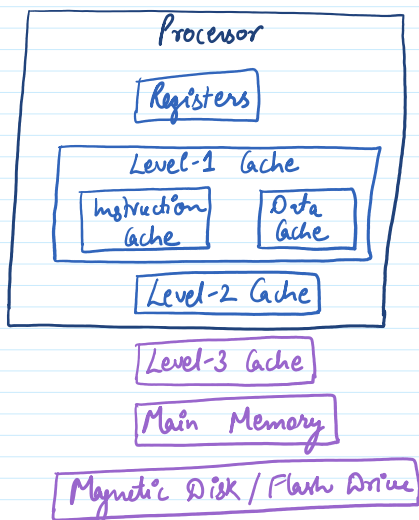 Processor
Registers
Level-1 Cache
Instruction
Cache
Data
Cache
Level-2 Cache
Level-3 Cache
Main Memory
Magnetic Disk / Flash Drive